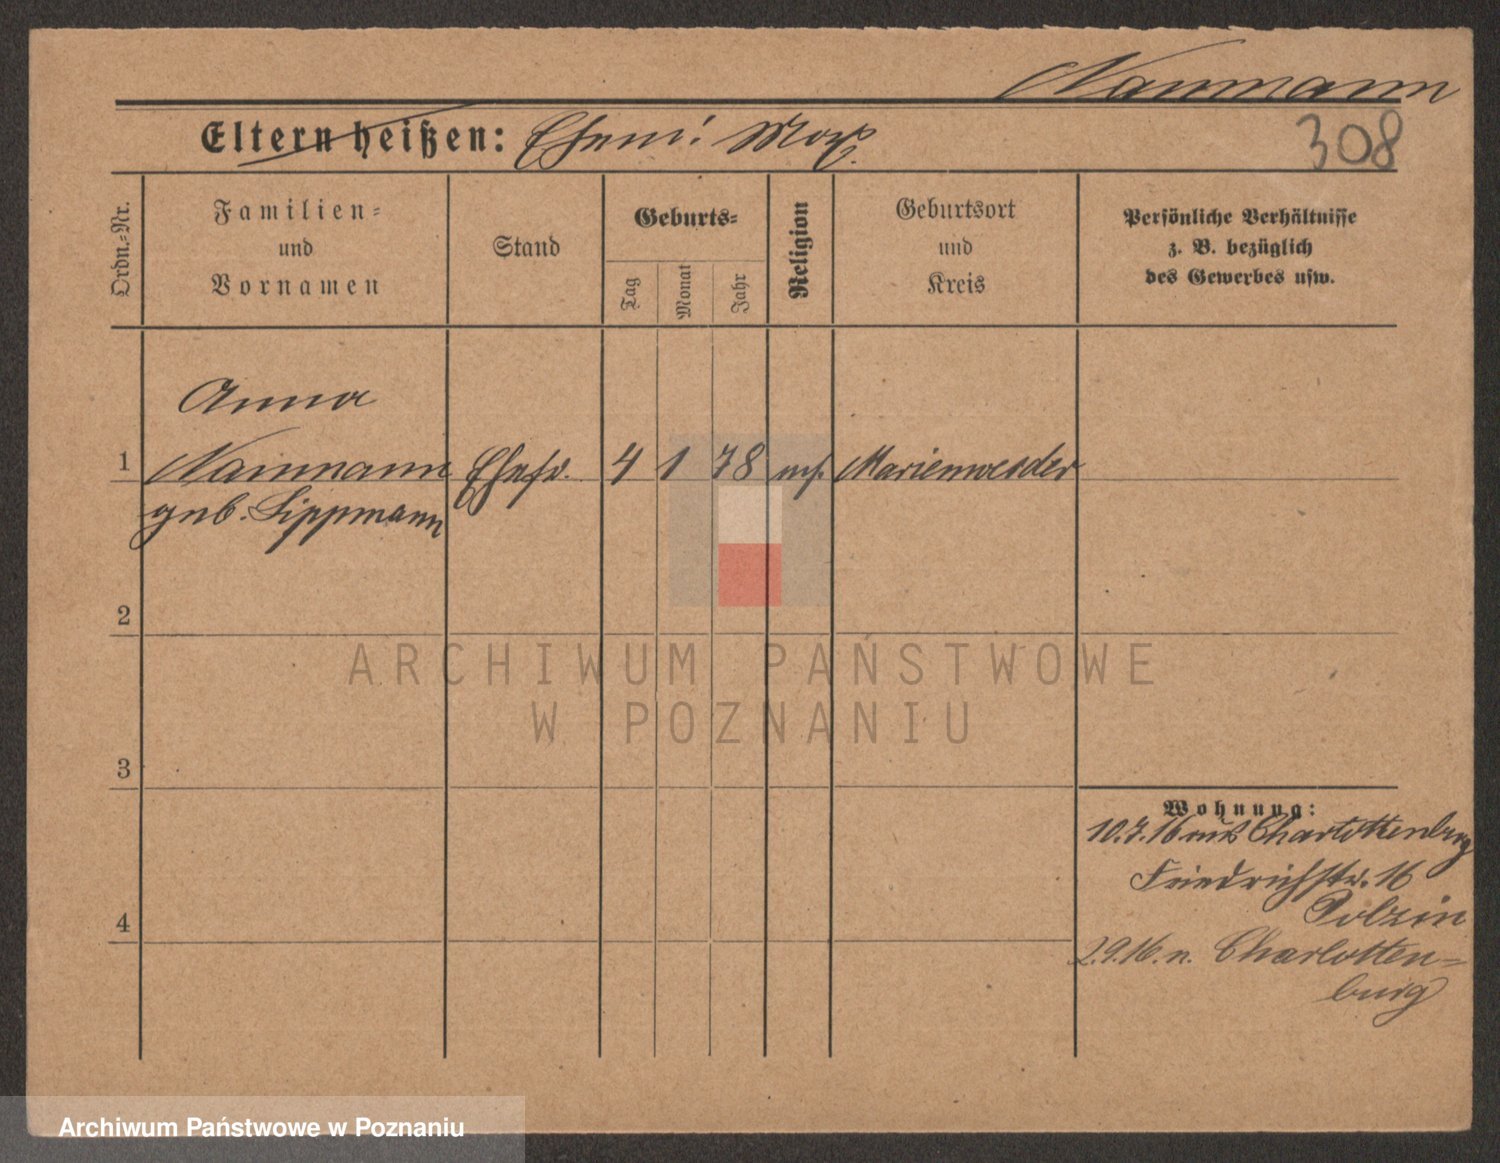 Naumann
Eltern heißen: Ehem: Max.
308
Ordn.-Nr.
Familien-
und
Vornamen
Stand
Geburts-
Tag
Monat
Jahr
Religion
Geburtsort
und
Kreis
Persönliche Verhältnisse
z. B. bezüglich
des Gewerbes usw.
Anna
1 Naumann Ehefr. 4 1 78 Marienwerder
geb. Lippmann
2
3
4
Wohnung:
10.7.16 aus Charlottenburg
Friedrichstr. 16
Polzin
2.9.16. n. Charlotten=
burg
ARCHIWUM PAŃSTWOWE
W POZNANIU
Archiwum Państwowe w Poznaniu